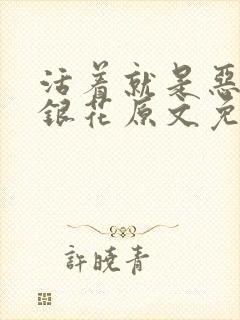 活着就是惡
銀花原文免
許曉青